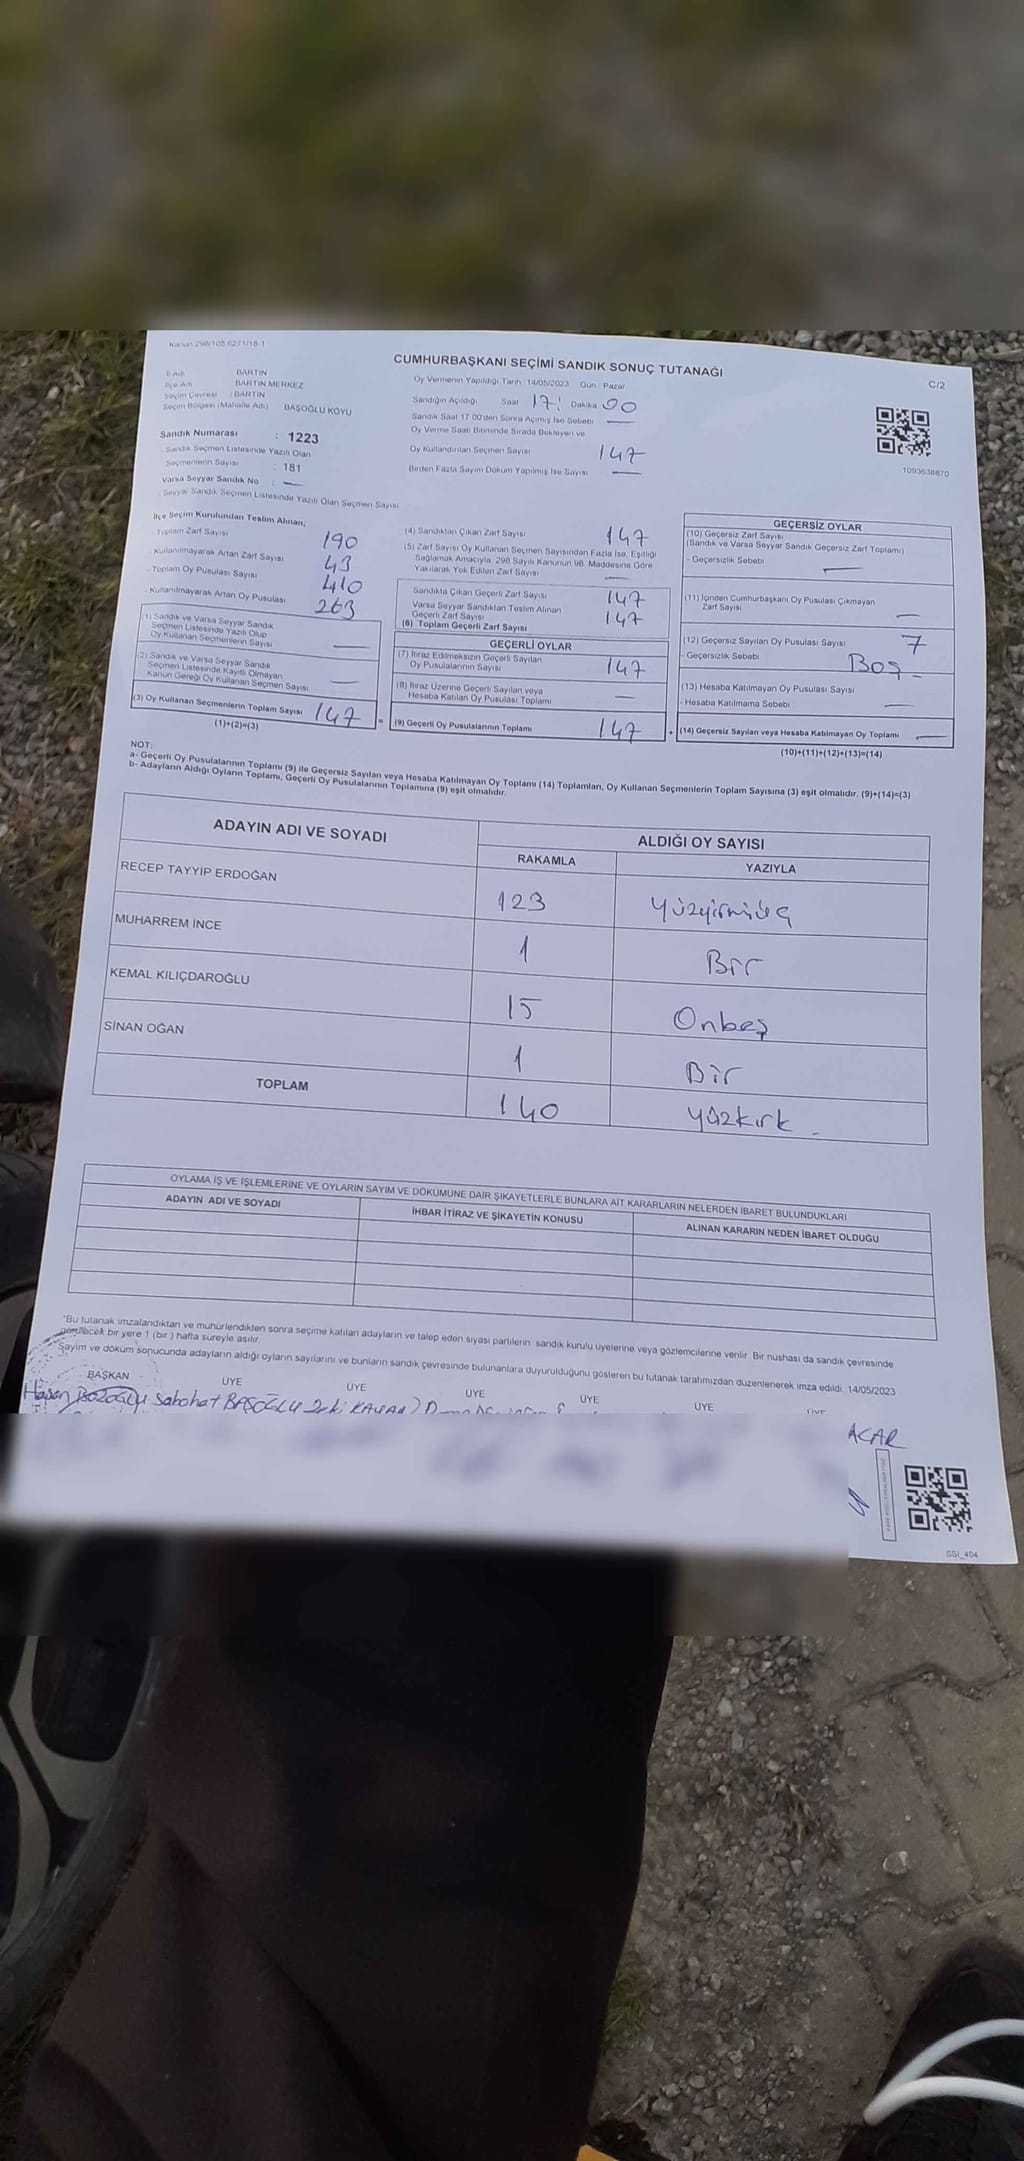 Kanun 298/105,6271/18-1
CUMHURBAŞKANI SEÇİMİ SANDIK SONUÇ TUTANAĞI
C/2
İl Adı : BARTIN
İlçe Adı : BARTIN MERKEZ
Seçim Çevresi : BARTIN
Seçim Bölgesi (Mahalle Adı) : BAŞOĞLU KÖYÜ
Sandık Numarası : 1223
Sandık Seçmen Listesinde Yazılı Olan
Seçmenlerin Sayısı : 181
Varsa Seyyar Sandık No : —
Seyyar Sandık Seçmen Listesinde Yazılı Olan Seçmen Sayısı
Oy Vermenin Yapıldığı Tarih 14/05/2023 Gün Pazar
Sandığın Açıldığı Saat 17: Dakika 00
Sandık Saat 17.00'den Sonra Açılmış İse Sebebi —
Oy Verme Saati Bitiminde Sırada Bekleyen ve
Oy Kullandırılan Seçmen Sayısı 147
Birden Fazla Sayım Döküm Yapılmış İse Sayısı —
1093638870
İlçe Seçim Kurulundan Teslim Alınan;
- Toplam Zarf Sayısı 190
- Kullanılmayarak Artan Zarf Sayısı 43
- Toplam Oy Pusulası Sayısı 410
- Kullanılmayarak Artan Oy Pusulası 263
(1) Sandık ve Varsa Seyyar Sandık
Seçmen Listesinde Yazılı Olup
Oy Kullanan Seçmenlerin Sayısı —
(2) Sandık ve Varsa Seyyar Sandık
Seçmen Listesinde Kayıtlı Olmayan
Kanun Gereği Oy Kullanan Seçmen Sayısı —
(3) Oy Kullanan Seçmenlerin Toplam Sayısı 147
(1)+(2)=(3)
(4) Sandıktan Çıkan Zarf Sayısı 147
(5) Zarf Sayısı Oy Kullanan Seçmen Sayısından Fazla İse, Eşitliği
Sağlamak Amacıyla, 298 Sayılı Kanunun 98. Maddesine Göre
Yakılarak Yok Edilen Zarf Sayısı —
Sandıkta Çıkan Geçerli Zarf Sayısı 147
Varsa Seyyar Sandıktan Teslim Alınan
Geçerli Zarf Sayısı 147
(6) Toplam Geçerli Zarf Sayısı
GEÇERLİ OYLAR
(7) İtiraz Edilmeksizin Geçerli Sayılan
Oy Pusulalarının Sayısı 147
(8) İtiraz Üzerine Geçerli Sayılan veya
Hesaba Katılan Oy Pusulası Toplamı —
(9) Geçerli Oy Pusulalarının Toplamı 147
GEÇERSİZ OYLAR
(10) Geçersiz Zarf Sayısı
(Sandık ve Varsa Seyyar Sandık Geçersiz Zarf Toplamı)
- Geçersizlik Sebebi —
(11) İçinden Cumhurbaşkanı Oy Pusulası Çıkmayan
Zarf Sayısı —
(12) Geçersiz Sayılan Oy Pusulası Sayısı 7
- Geçersizlik Sebebi Boş -
(13) Hesaba Katılmayan Oy Pusulası Sayısı
- Hesaba Katılmama Sebebi —
(14) Geçersiz Sayılan veya Hesaba Katılmayan Oy Toplamı —
(10)+(11)+(12)+(13)=(14)
NOT:
a- Geçerli Oy Pusulalarının Toplamı (9) ile Geçersiz Sayılan veya Hesaba Katılmayan Oy Toplamı (14) Toplamları, Oy Kullanan Seçmenlerin Toplam Sayısına (3) eşit olmalıdır. (9)+(14)=(3)
b- Adayların Aldığı Oyların Toplamı, Geçerli Oy Pusulalarının Toplamına (9) eşit olmalıdır.
ADAYIN ADI VE SOYADI ALDIĞI OY SAYISI
RAKAMLA YAZIYLA
RECEP TAYYİP ERDOĞAN 123 Yüzyirmiüç
MUHARREM İNCE 1 Bir
KEMAL KILIÇDAROĞLU 15 Onbeş
SİNAN OĞAN 1 Bir
TOPLAM 140 yüzkırk -
OYLAMA İŞ VE İŞLEMLERİNE VE OYLARIN SAYIM VE DÖKÜMÜNE DAİR ŞİKAYETLERLE BUNLARA AİT KARARLARIN NELERDEN İBARET BULUNDUKLARI
ADAYIN ADI VE SOYADI İHBAR İTİRAZ VE ŞİKAYETİN KONUSU ALINAN KARARIN NEDEN İBARET OLDUĞU
"Bu tutanak imzalandıktan ve mühürlendikten sonra seçime katılan adayların ve talep eden siyasi partilerin sandık kurulu üyelerine veya gözlemcilerine verilir. Bir nüshası da sandık çevresinde
görülecek bir yere 1 (bir) hafta süreyle asılır.
Sayım ve döküm sonucunda adayların aldığı oyların sayılarını ve bunların sandık çevresinde bulunanlara duyurulduğunu gösteren bu tutanak tarafımızdan düzenlenerek imza edildi. 14/05/2023
BAŞKAN ÜYE ÜYE ÜYE ÜYE ÜYE ÜYE
Hasan BOZOĞLU Sabahat BAŞOĞLU Zeki
ACAR
SSI_404